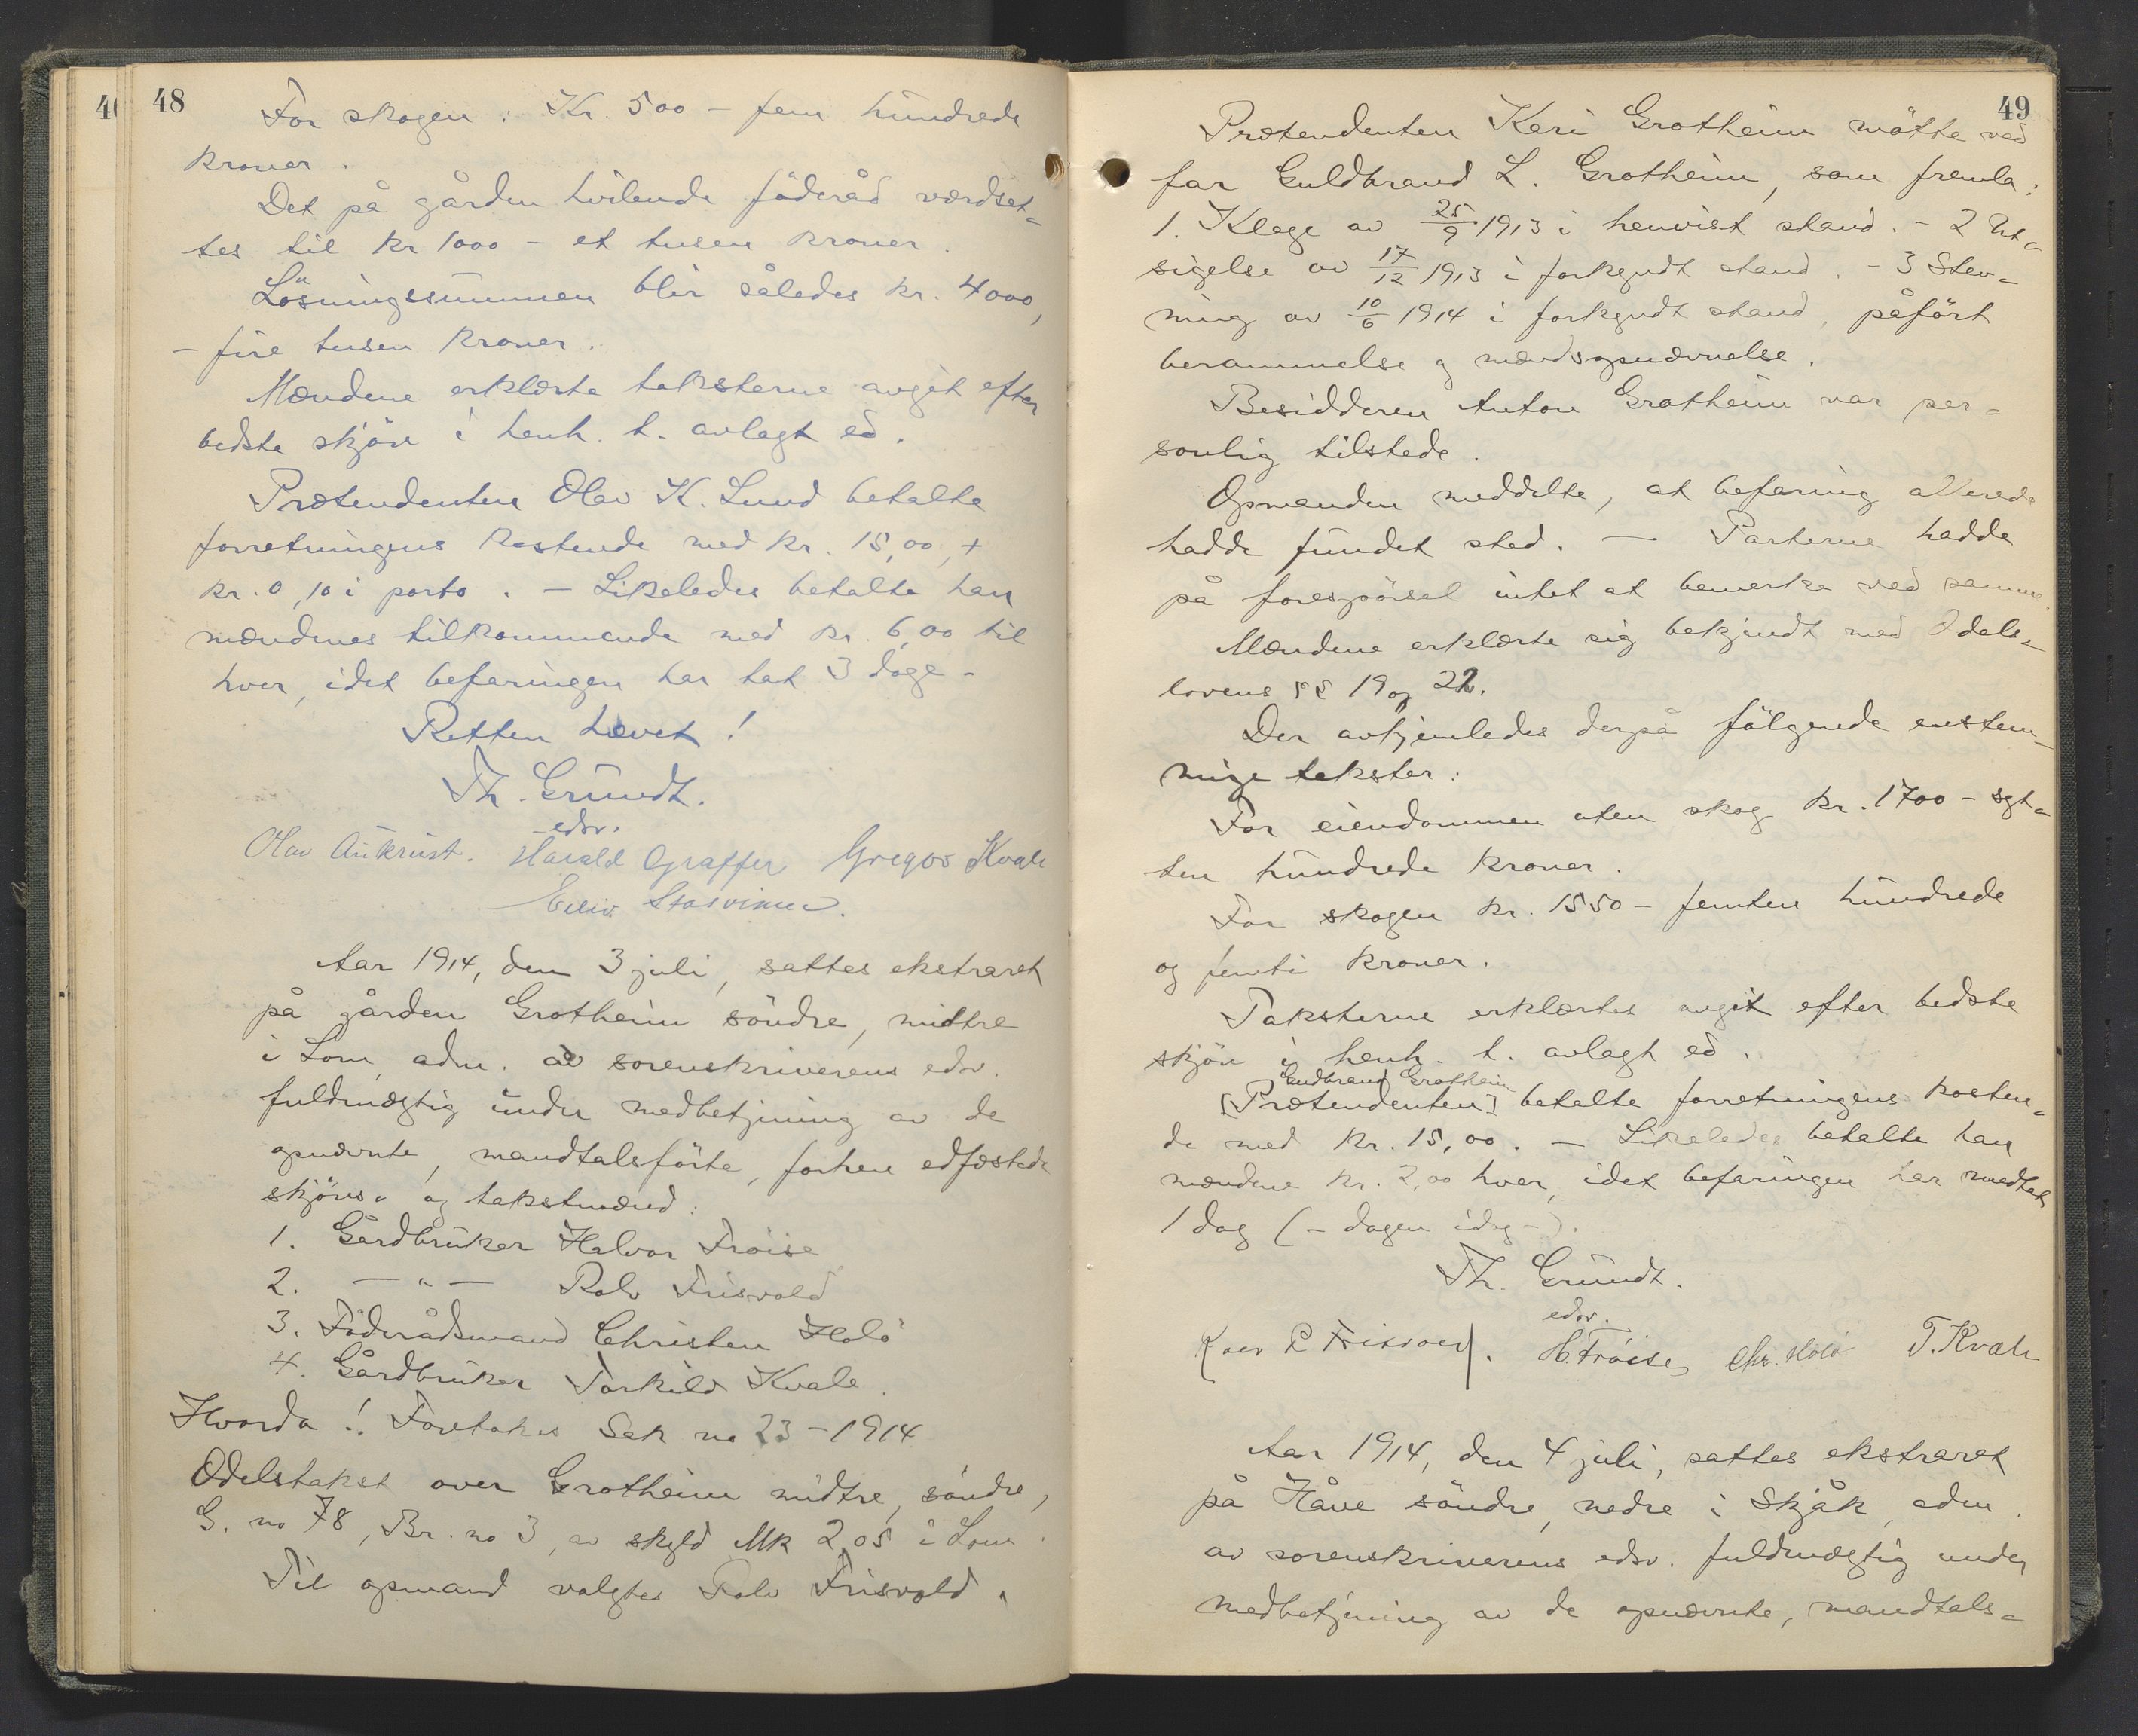 48
For skogen: Kr. 500 - fem hundrede
kroner.
Det på gården hvilende föderåd værdset=
tes til kr 1000 - et tusen kroner.
Lösningssummen blir således kr. 4000,
- fire tusen kroner.
Mændene erklærte taksterne avgit efter
bedste skjön i henh. t. avlagt ed.
Prætendenten Olav K. Lund betalte
forretningens kostende med kr. 15,00, +
kr. 0,10 i porto. - Likeledes betalte han
mændenes tilkommende med kr. 6,00 til
hver, idet befaringen har tat 3 dage -
Retten hævet!
Th. Grundt.
edsv.
Olav Aukrust. Harald Graffer Gregor Kvale
Eiliv
Aar 1914, den 3 juli, sattes ekstraret
på gården Grotheim söndre, midtre
i Lom, adm. av sorenskriverens edsv.
fuldmægtig under medbetjening av de
opnævnte, mandtalsförte, forhen edfæstede
skjöns= og takstmænd:
1. Gårdbruker Halvor Fröise
2. — " — Rolv Frisvold
3. Föderådsmand Christen Holö
4. Gårdbruker Torkild Kvale.
Hvorda!: Foretokes Sak no 23 - 1914
Odelstakst over Grotheim midtre, söndre,
G. no 78, Br. no 3, av skyld Mk 2,05 i Lom.
Til opmand valgtes Rolv Frisvold.
49
Prætendenten Kari Grotheim mötte ved
far Guldbrand L. Grotheim, som fremla:
1. Klage av 25/9 1913 i henvist stand. - 2 Ut=
sigelse av 17/12 1913 i forkyndt stand. - 3 Stev=
ning av 10/6 1914 i forkyndt stand, påfört
berammelse og mændsopnævnelse.
Besidderen Anton Grotheim var per=
sonlig tilstede.
Opmanden meddelte, at befaring allerede
hadde fundet sted. — Parterne hadde
på forespörsel intet at bemerke ved samme.
Mændene erklærte sig bekjendt med Odels=
lovens §§ 19 og 22.
Der avhjemledes derpå fölgende enstem=
mige takster:
For eiendommen uten skog kr. 1700 - syt=
ten hundrede kroner.
For skogen kr. 1550 - femten hundrede
og femti kroner.
Taksterne erklærtes avgit efter bedste
skjön i henh. t. avlagt ed.
Gudbrand Grotheim
[Prætendenten] betalte forretningens kosten=
de med kr. 15,00. — Likeledes betalte han
mændene kr. 2,00 hver, idet befaringen har medtat
1 dag (- dagen idag -).
Th. Grundt.
edsv.
R Frisvold. H. Fröise, Chr. Holö T. Kvale
Aar 1914, den 4 juli, sattes ekstraret
på Håve söndre, nedre i Skjåk, adm.
av sorenskriverens edsv. fuldmægtig under
medbetjening av de opnævnte, mandtals=